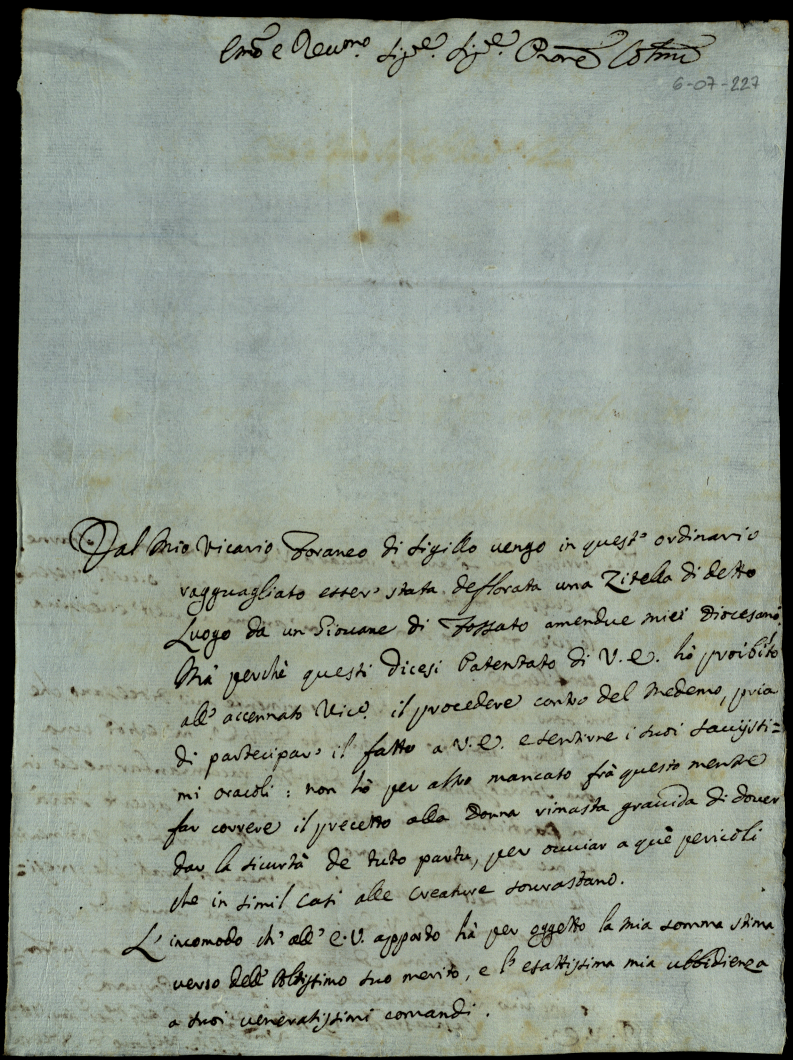 Emo e Reumo. Sigre. Sigre. Prone Colmo
6-07-227
Dal Mio Vicario Foraneo di Sigillo vengo in questo ordinario
ragguagliato essere stata deflorata una Zitella di detto
Luogo da un Giovane di Fossato amendue miei Diocesani.
Mà perchè questi dicesi Patentato di V. E. hò proibito
all' accennato Vico. il procedere contro del Medemo, pria
di partecipare il fatto a V. E. e sentirne i suoi saviissi=
mi oracoli: non hò per altro mancato frà questo mentre
far correre il precetto alla Donna rimasta gravida di dover
dar la sicurtà de tuto partu, per ovviar a què pericoli
che in simil casi alle Creature sovrastano.
L' incomodo ch' all' E. V. apporto hà per oggetto la mia somma stima
verso dell' Altissimo suo merito, e l' esattissima mia ubbidienza
a suoi veneratissimi comandi.